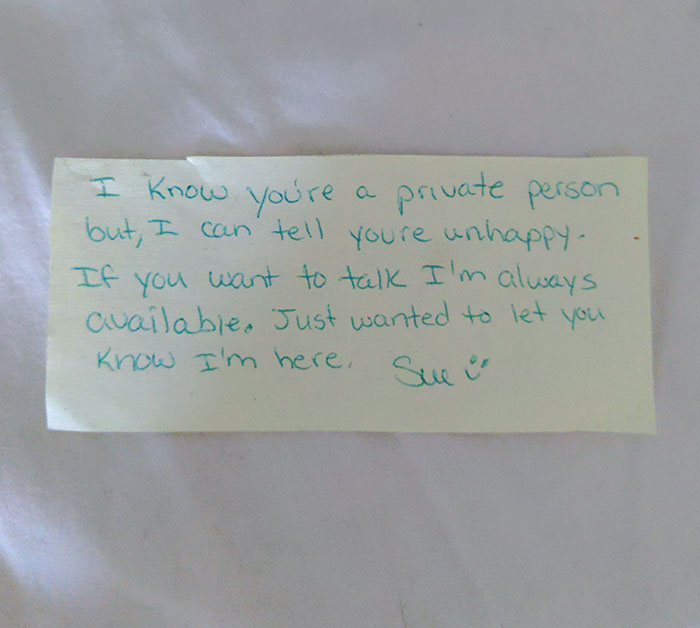 I know you're a private person
but, I can tell you're unhappy.
If you want to talk I'm always
available. Just wanted to let you
know I'm here. Sue